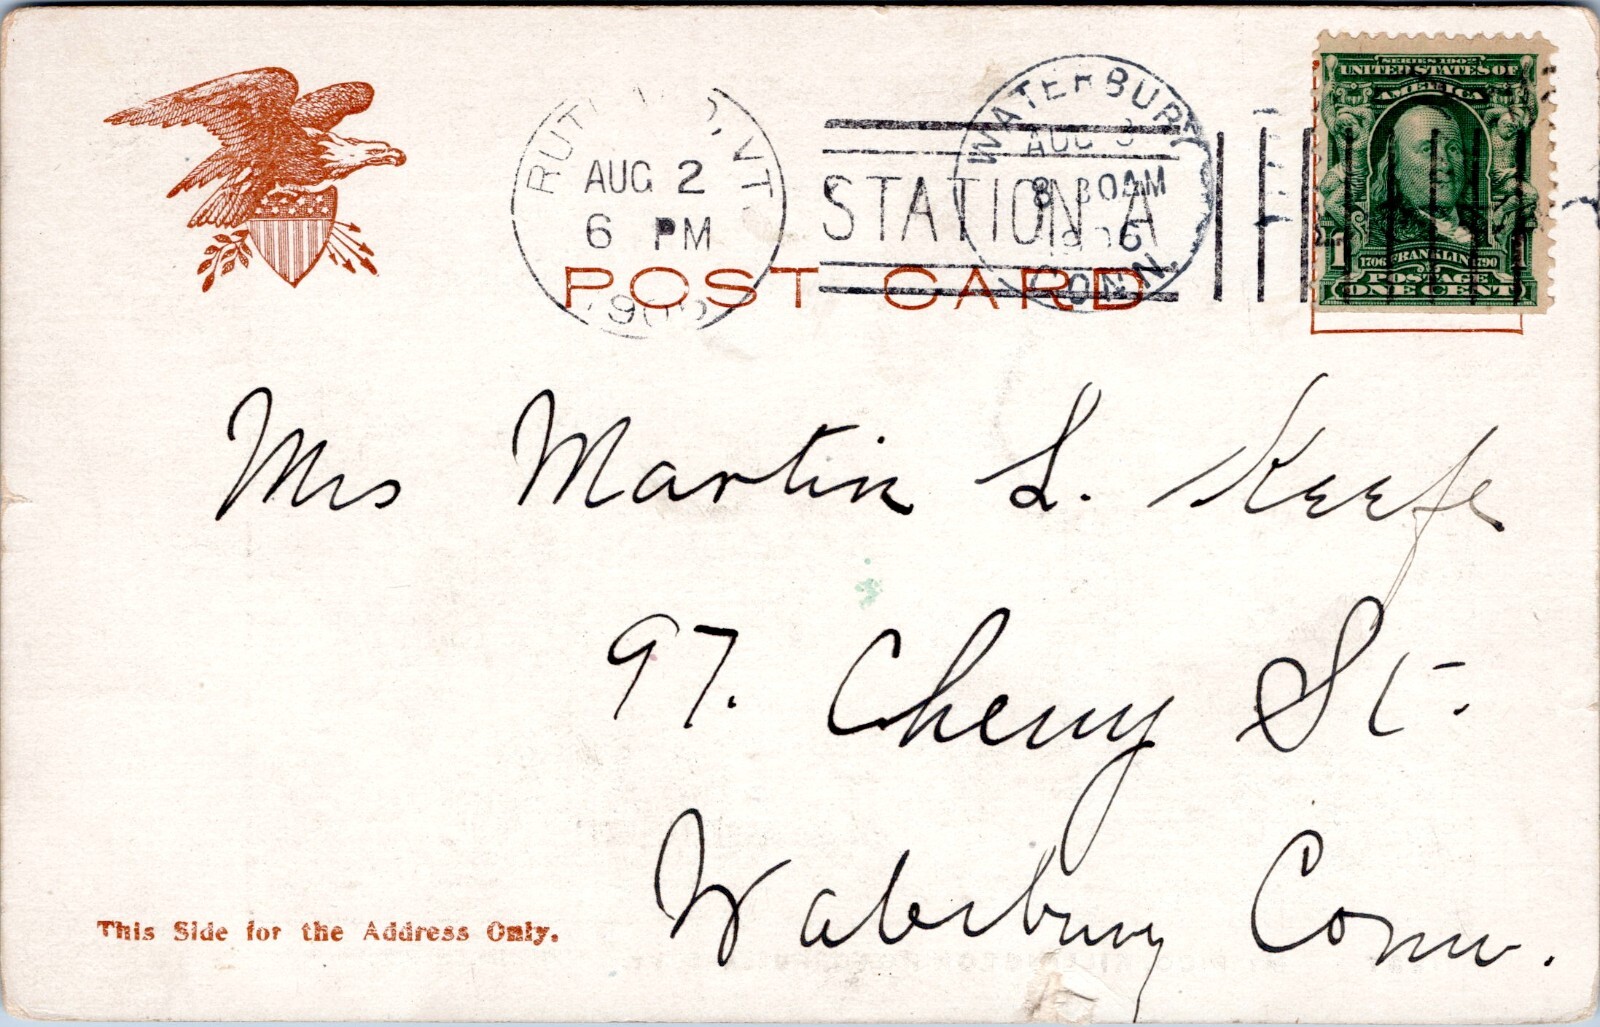 SERIES 1902
UNITED STATES OF
AMERICA
1706 FRANKLIN 1790
1 1
POSTAGE
ONE CENT
RUTLAND, VT.
AUG 2
6 PM
1906
STATION A
WATERBURY
AUG 3
8 30AM
1906
CONN.
POST CARD
Mrs Martin L. Keefe
97. Cherry St.
Waterbury Conn.
This Side for the Address Only.